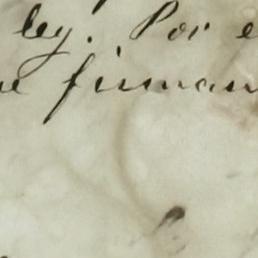 ley. Por
firman